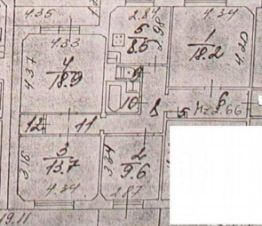 4.35
2.84
4.34
4.33
5
8.5
2.98
1
18.2
4.20
4
18.9
4.37
10
8
5
6
H=2.66
12
11
3
13.7
3.16
2
9.6
3.34
4.34
2.87
19.11